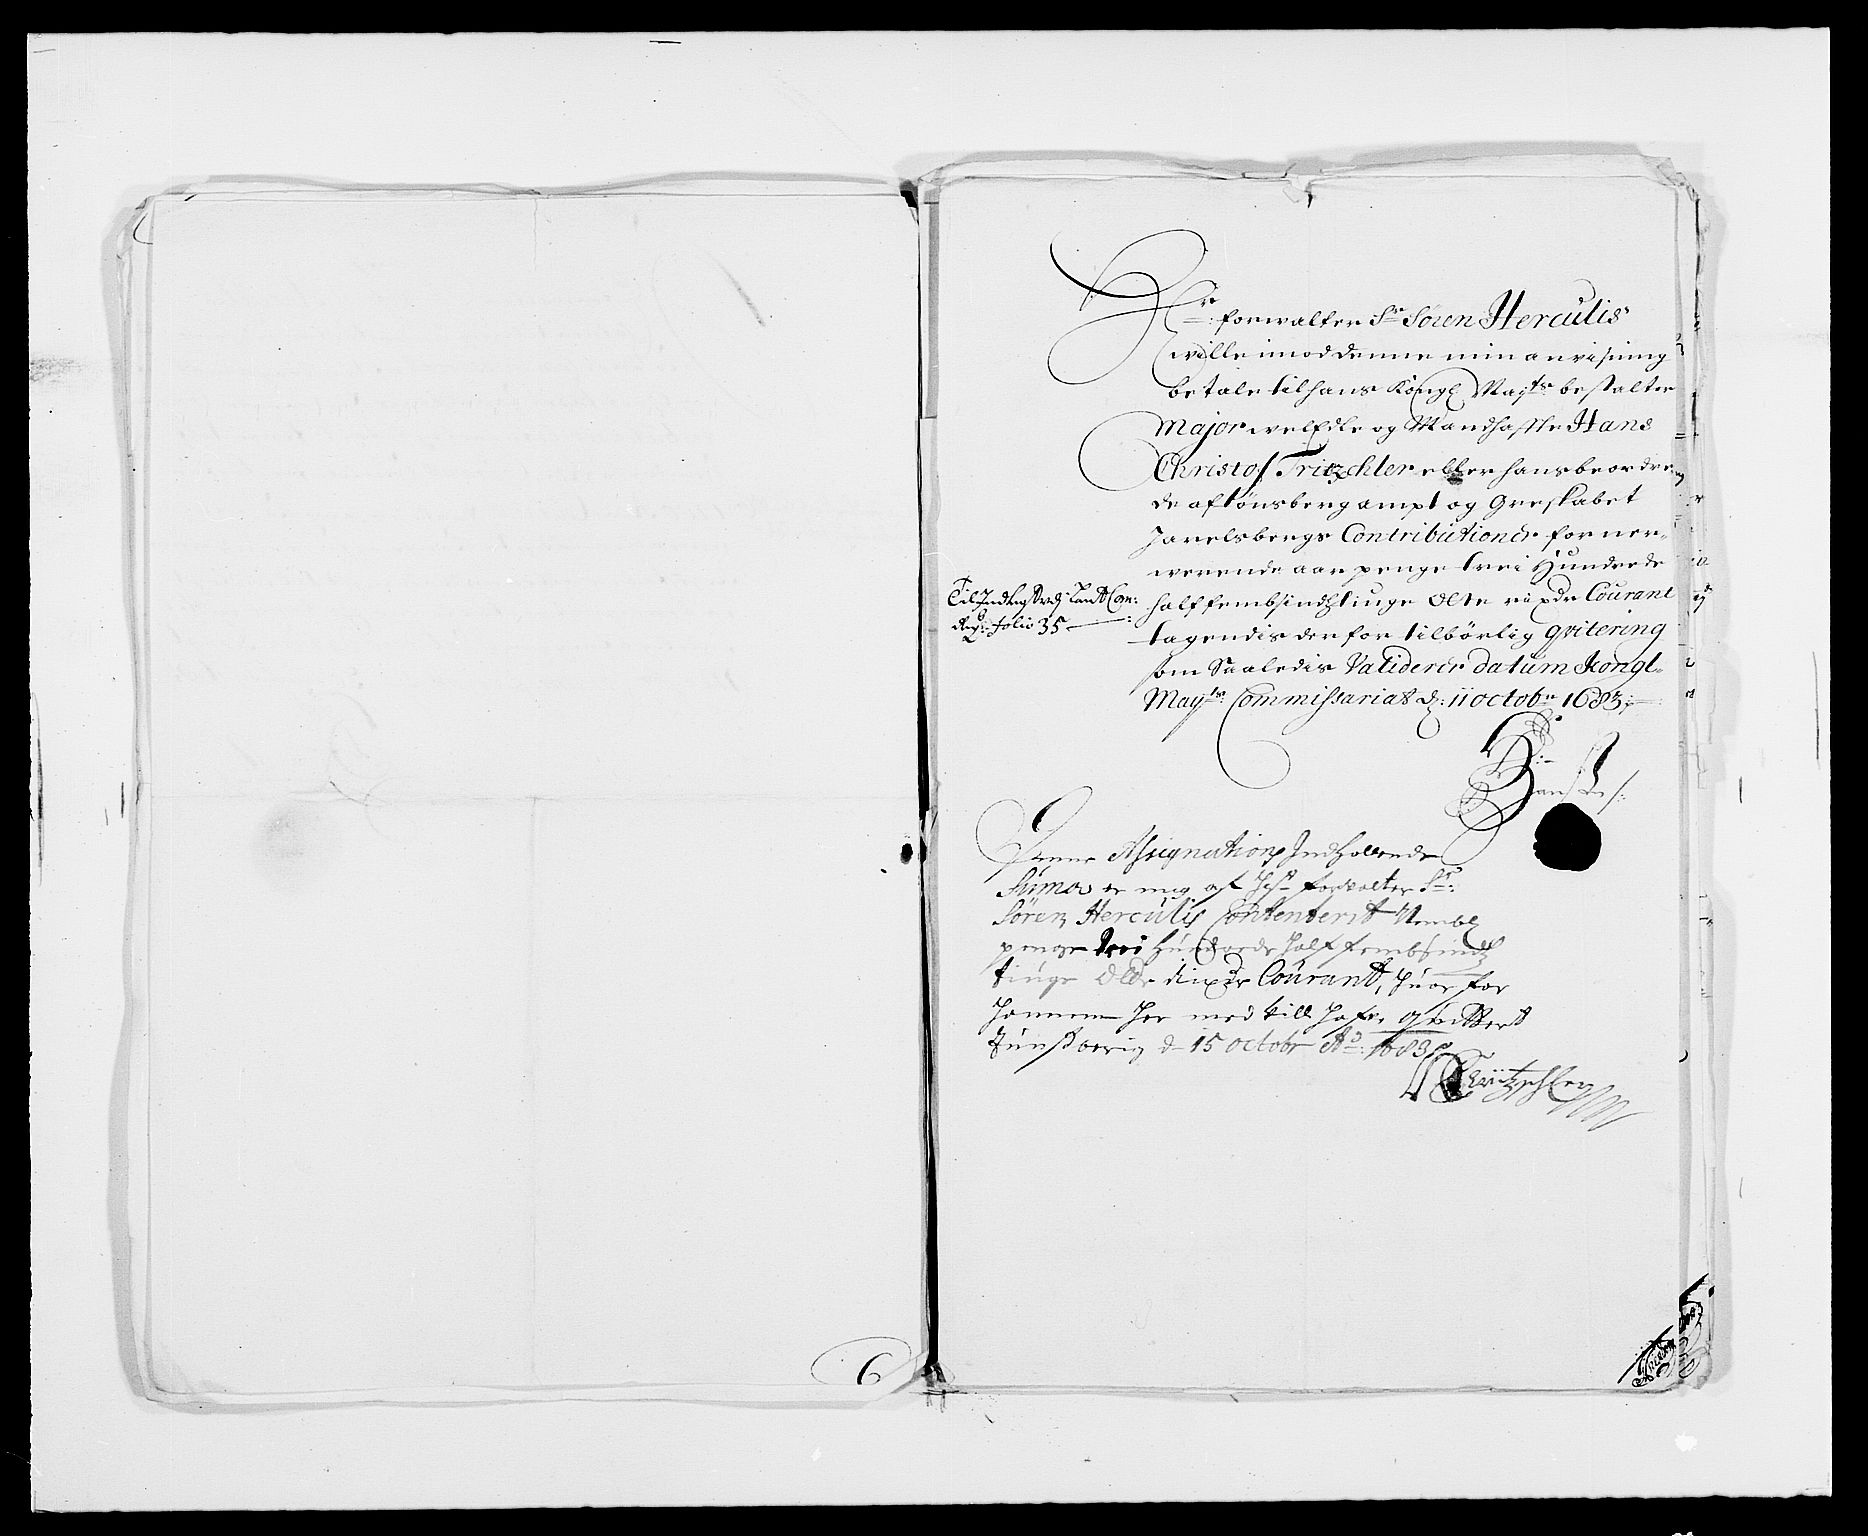 Hr: forwalter Sr Søren Herculis
wille imod denne min anvisning
betale til hans Kongl Mayts bestalter
Major welEdle og Mandhaffte Hans
Christof Tritzchler eller hans beordre
de af tönsberg ampt og Grefskabet
Jarelsbergs Contributioner for ner-
werende aar penge trei Hundrede
half fembsindstiuge Otte rixdr Courant
tagendis derfor tilbörlig qvitering
som Saaledis Validerer datum Kongl-
Mayts: Commissariat d: 11 octobr 1683
Til Indtegt vdj Landt Com:
Reg: folio 35
Hans
Denne Assignations Indhollende
Suma er mig af forwalter Sr:
Sören Herculis Contenterit Nembl
penge trei Hundrede half fembsinds
tiuge Otte rixdr Courant, huor for
hannem her med till qvitterit
Tünsberig d 15 octobr Ao: 1683
Tritzschler
6